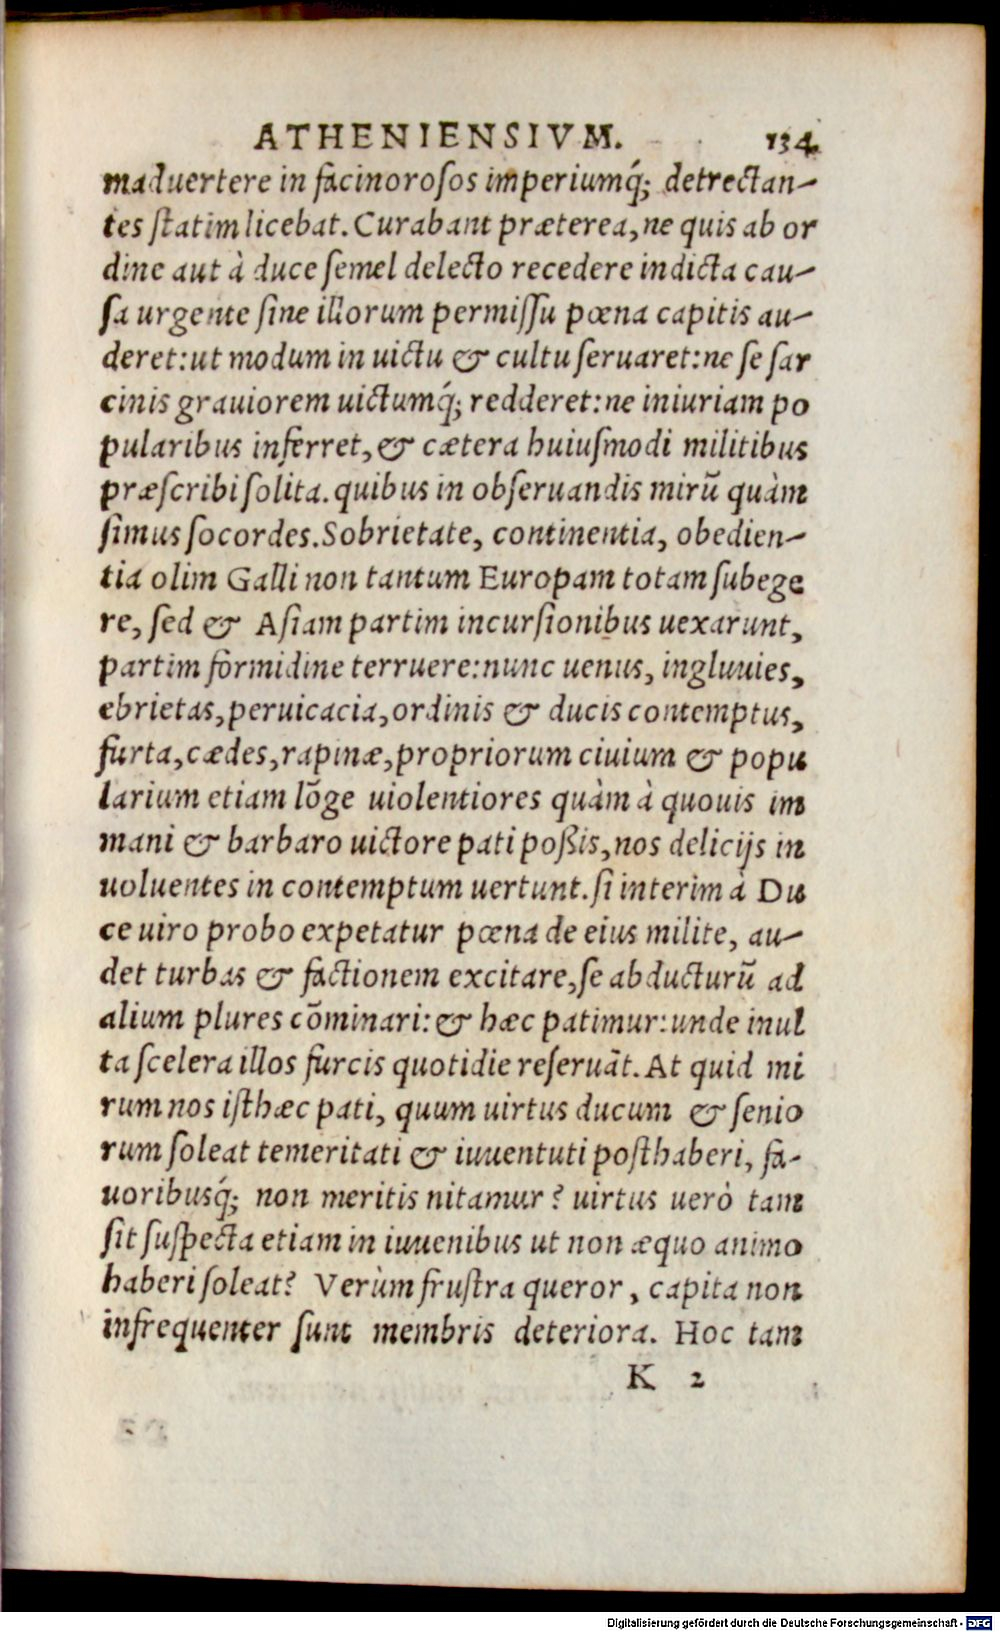 ATHENIENSIVM. 134
maduertere in facinorosos imperiumq́; detrectan-
tes statim licebat. Curabant præterea, ne quis ab or
dine aut à duce semel delecto recedere indicta cau-
sa urgente sine illorum permissu pœna capitis au-
deret: ut modum in uictu & cultu seruaret: ne se sar
cinis grauiorem uictumq́; redderet: ne iniuriam po
pularibus inferret, & cætera huiusmodi militibus
præscribi solita. quibus in obseruandis mirũ quàm
simus socordes. Sobrietate, continentia, obedien-
tia olim Galli non tantum Europam totam subege
re, sed & Asiam partim incursionibus uexarunt,
partim formidine terruere: nunc uenus, ingluuies,
ebrietas, peruicacia, ordinis & ducis contemptus,
furta, cædes, rapinæ, propriorum ciuium & popu
larium etiam lõge uiolentiores quàm à quouis im
mani & barbaro uictore pati poßis, nos delicijs in
uoluentes in contemptum uertunt. si interim à Du
ce uiro probo expetatur pœna de eius milite, au-
det turbas & factionem excitare, se abducturũ ad
alium plures cõminari: & hæc patimur: unde inul
ta scelera illos furcis quotidie reseruãt. At quid mi
rum nos isthæc pati, quum uirtus ducum & senio
rum soleat temeritati & iuuentuti posthaberi, fa-
uoribusq́; non meritis nitamur? uirtus uerò tam
sit suspecta etiam in iuuenibus ut non æquo animo
haberi soleat? Verùm frustra queror, capita non
infrequenter sunt membris deteriora. Hoc tam
K 2
Digitalisierung gefördert durch die Deutsche Forschungsgemeinschaft - DFG